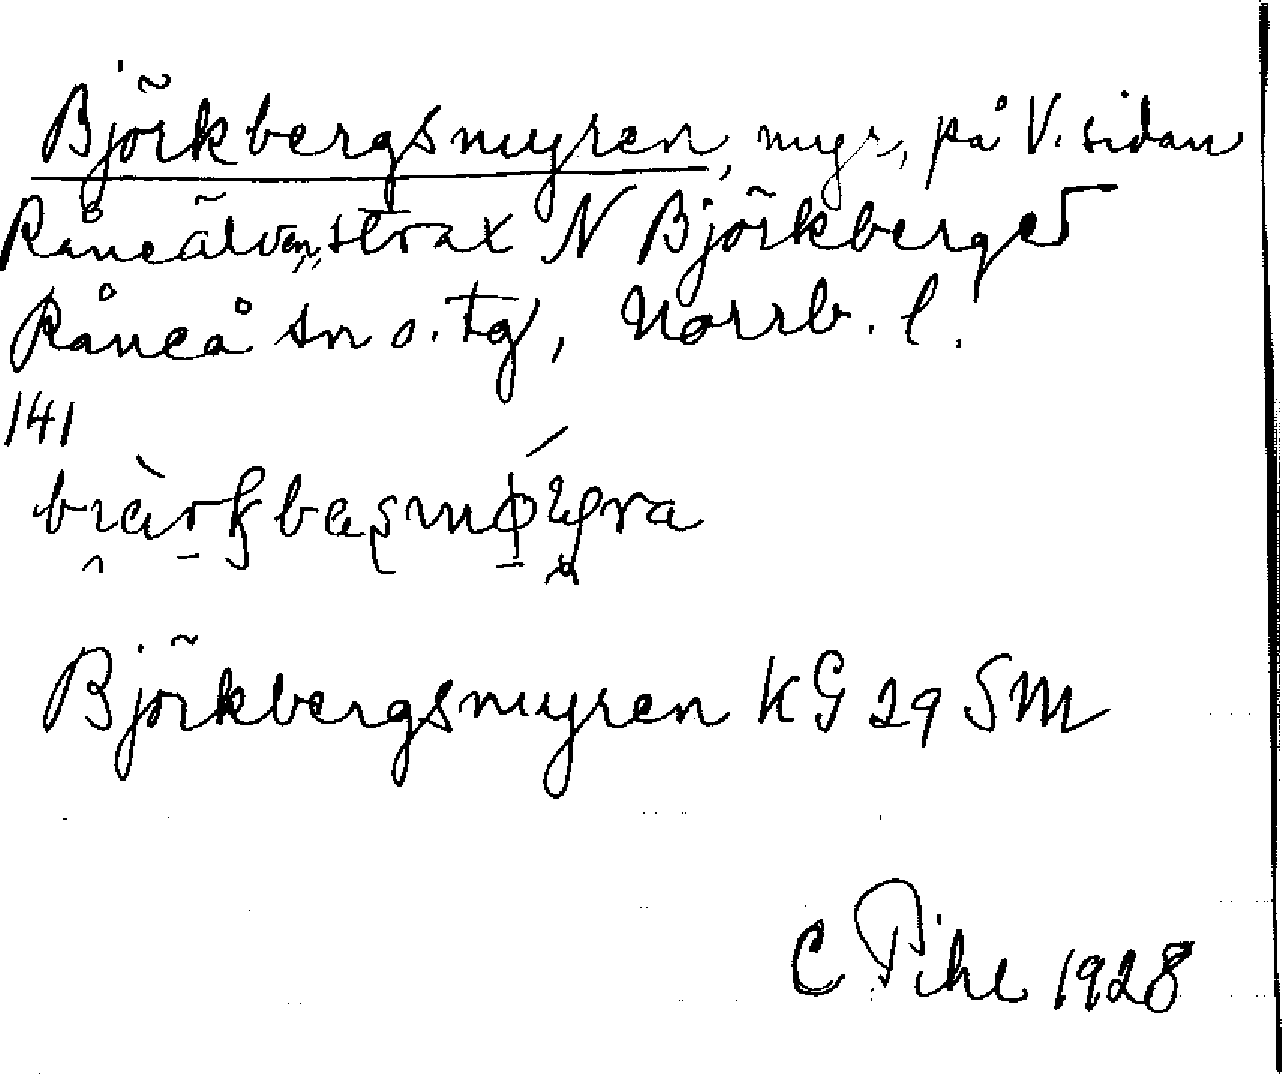 Björkbergsmyren, myr, på V. sidan
Råneälven, strax N Björkberget
Råneå sn o. tg, Norrb. l.
141
Björkbergsmyren KG 29 SM
C Pihl 1928